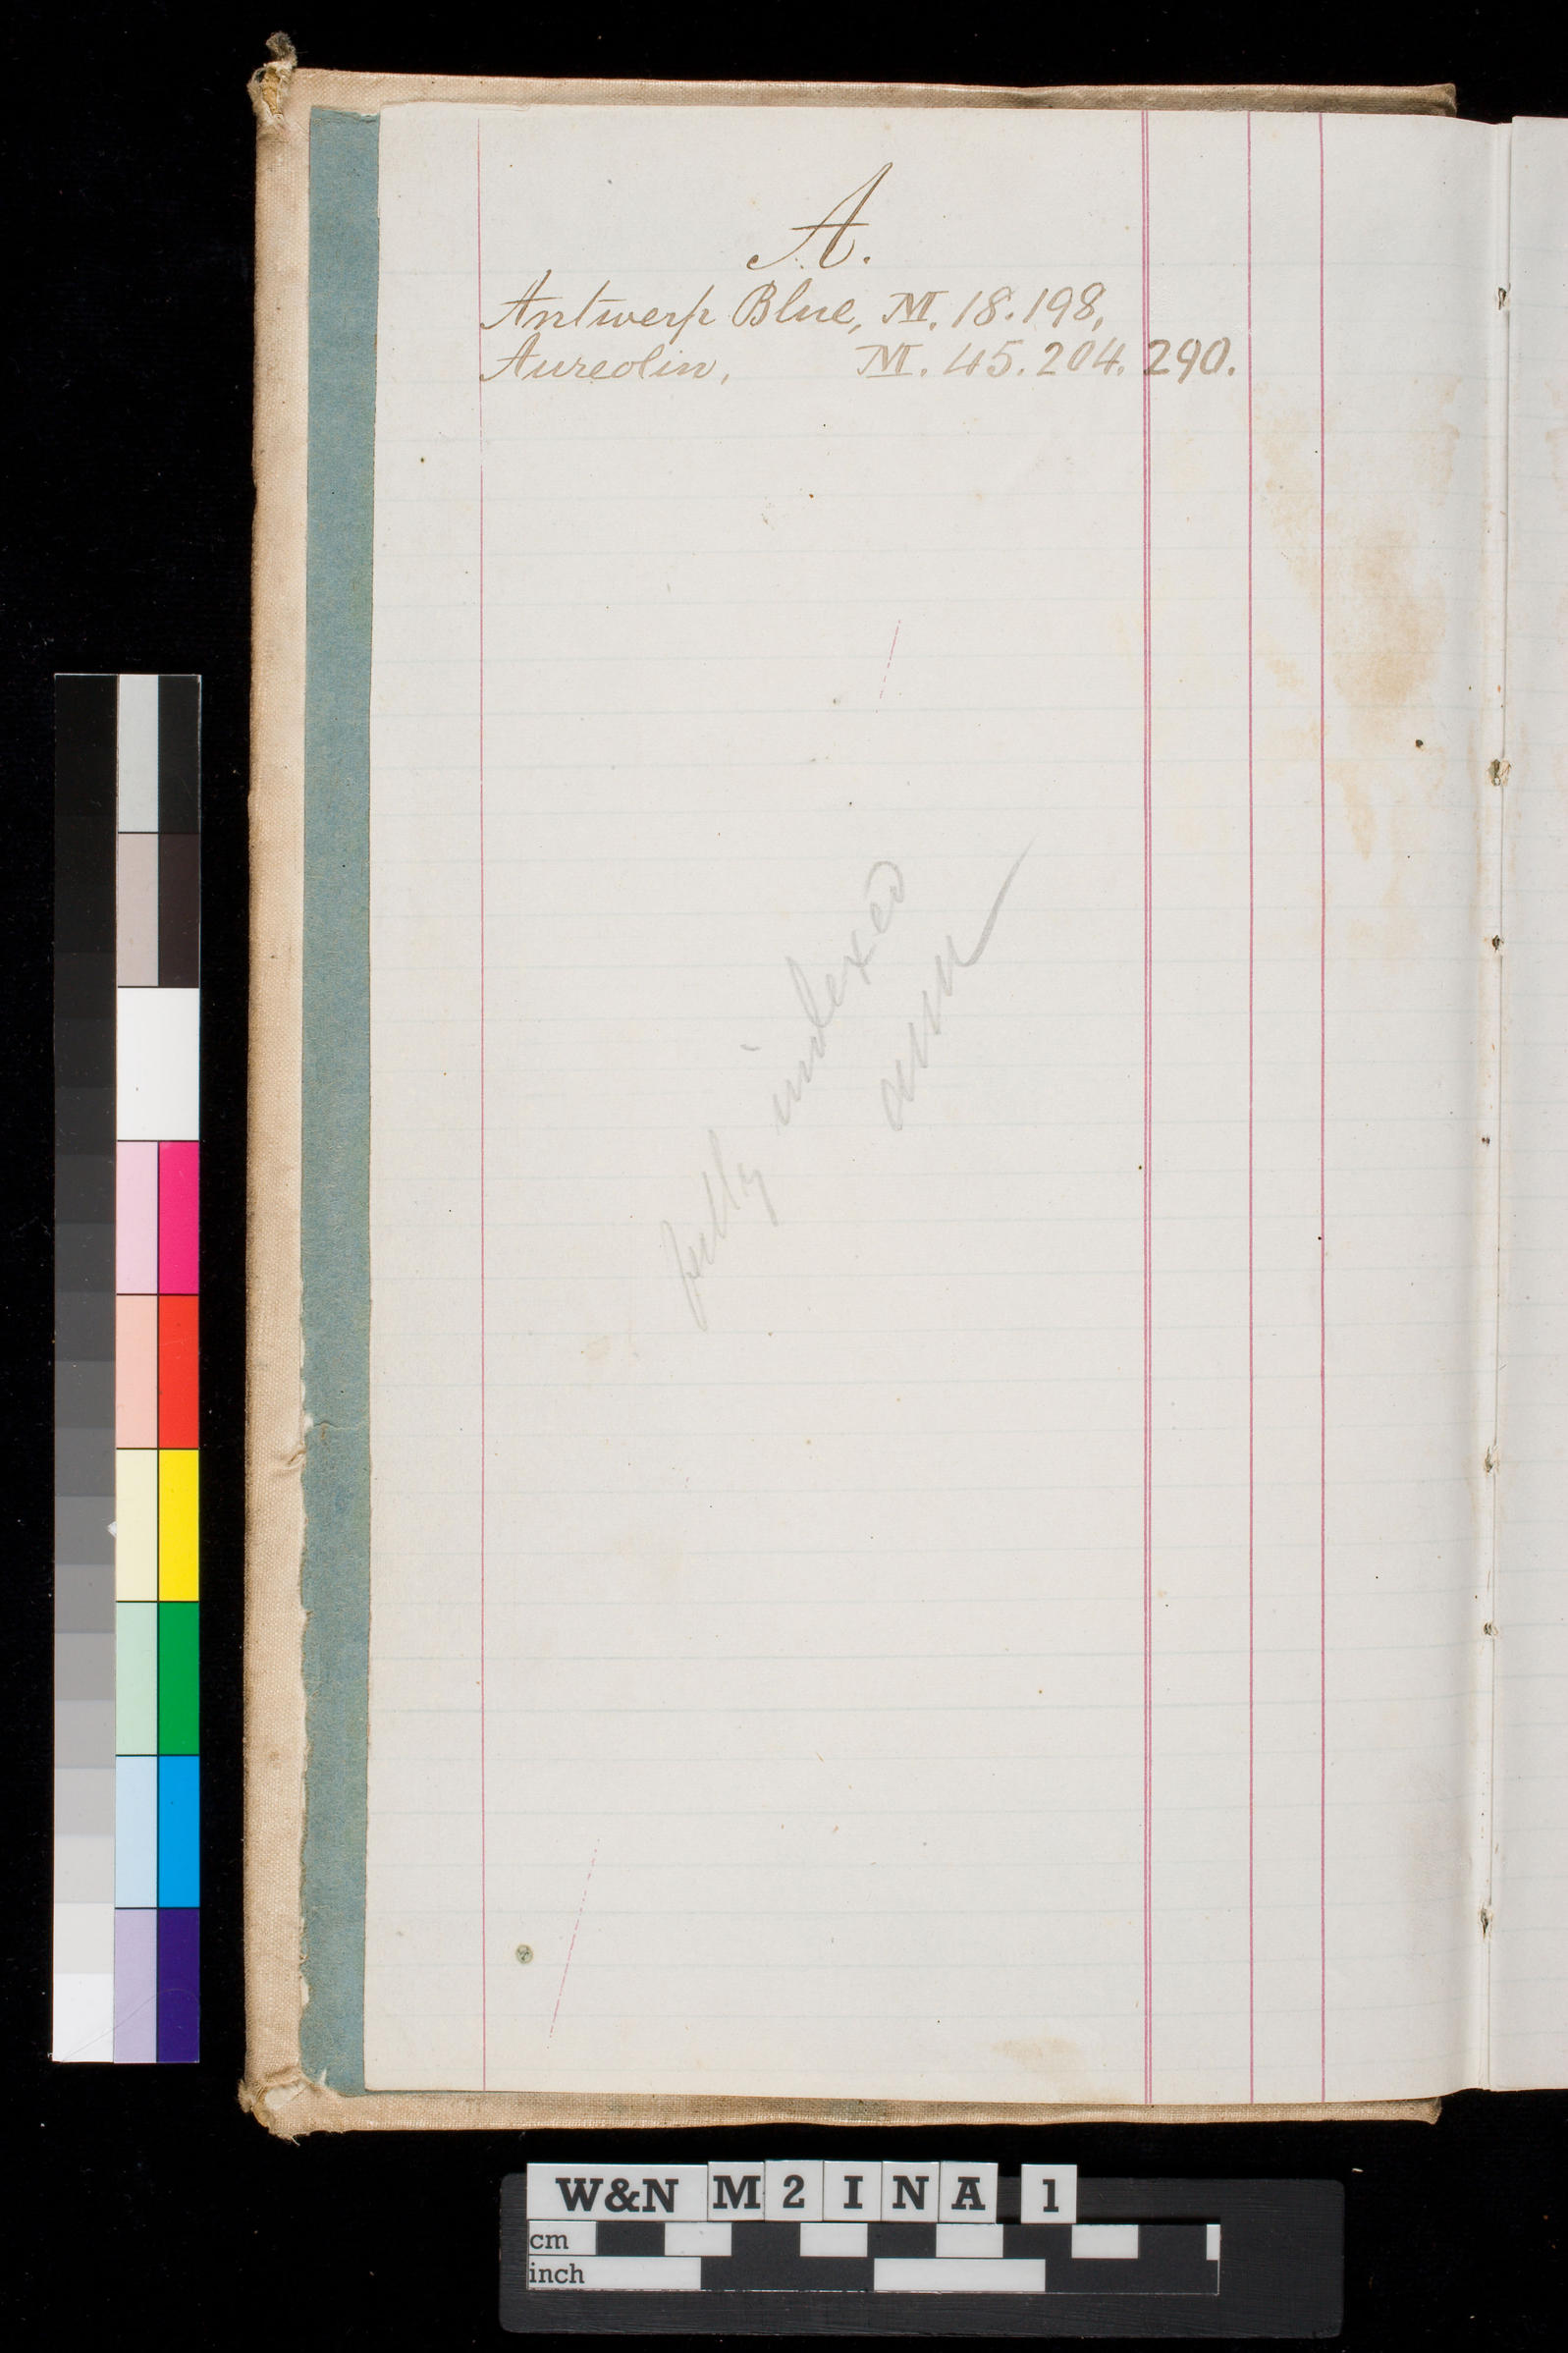 A.
Antwerp Blue, M. 18. 198,
Aureolin, M. 45. 204. 290.
fully indexed
W&N M 2 I N A 1
cm
inch